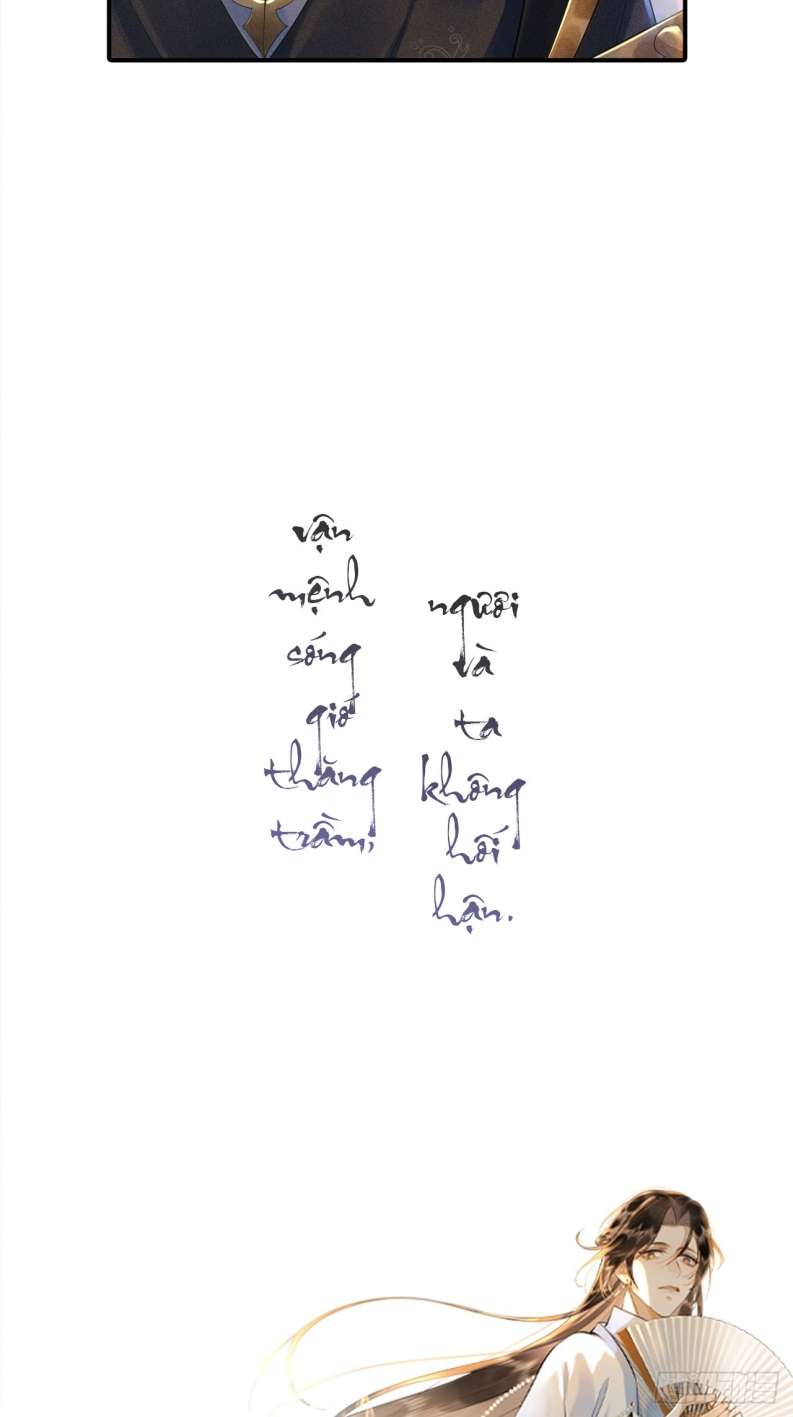 vận
mệnh
sóng
gió
thăng
trầm,
người
và
ta
không
hối
hận.